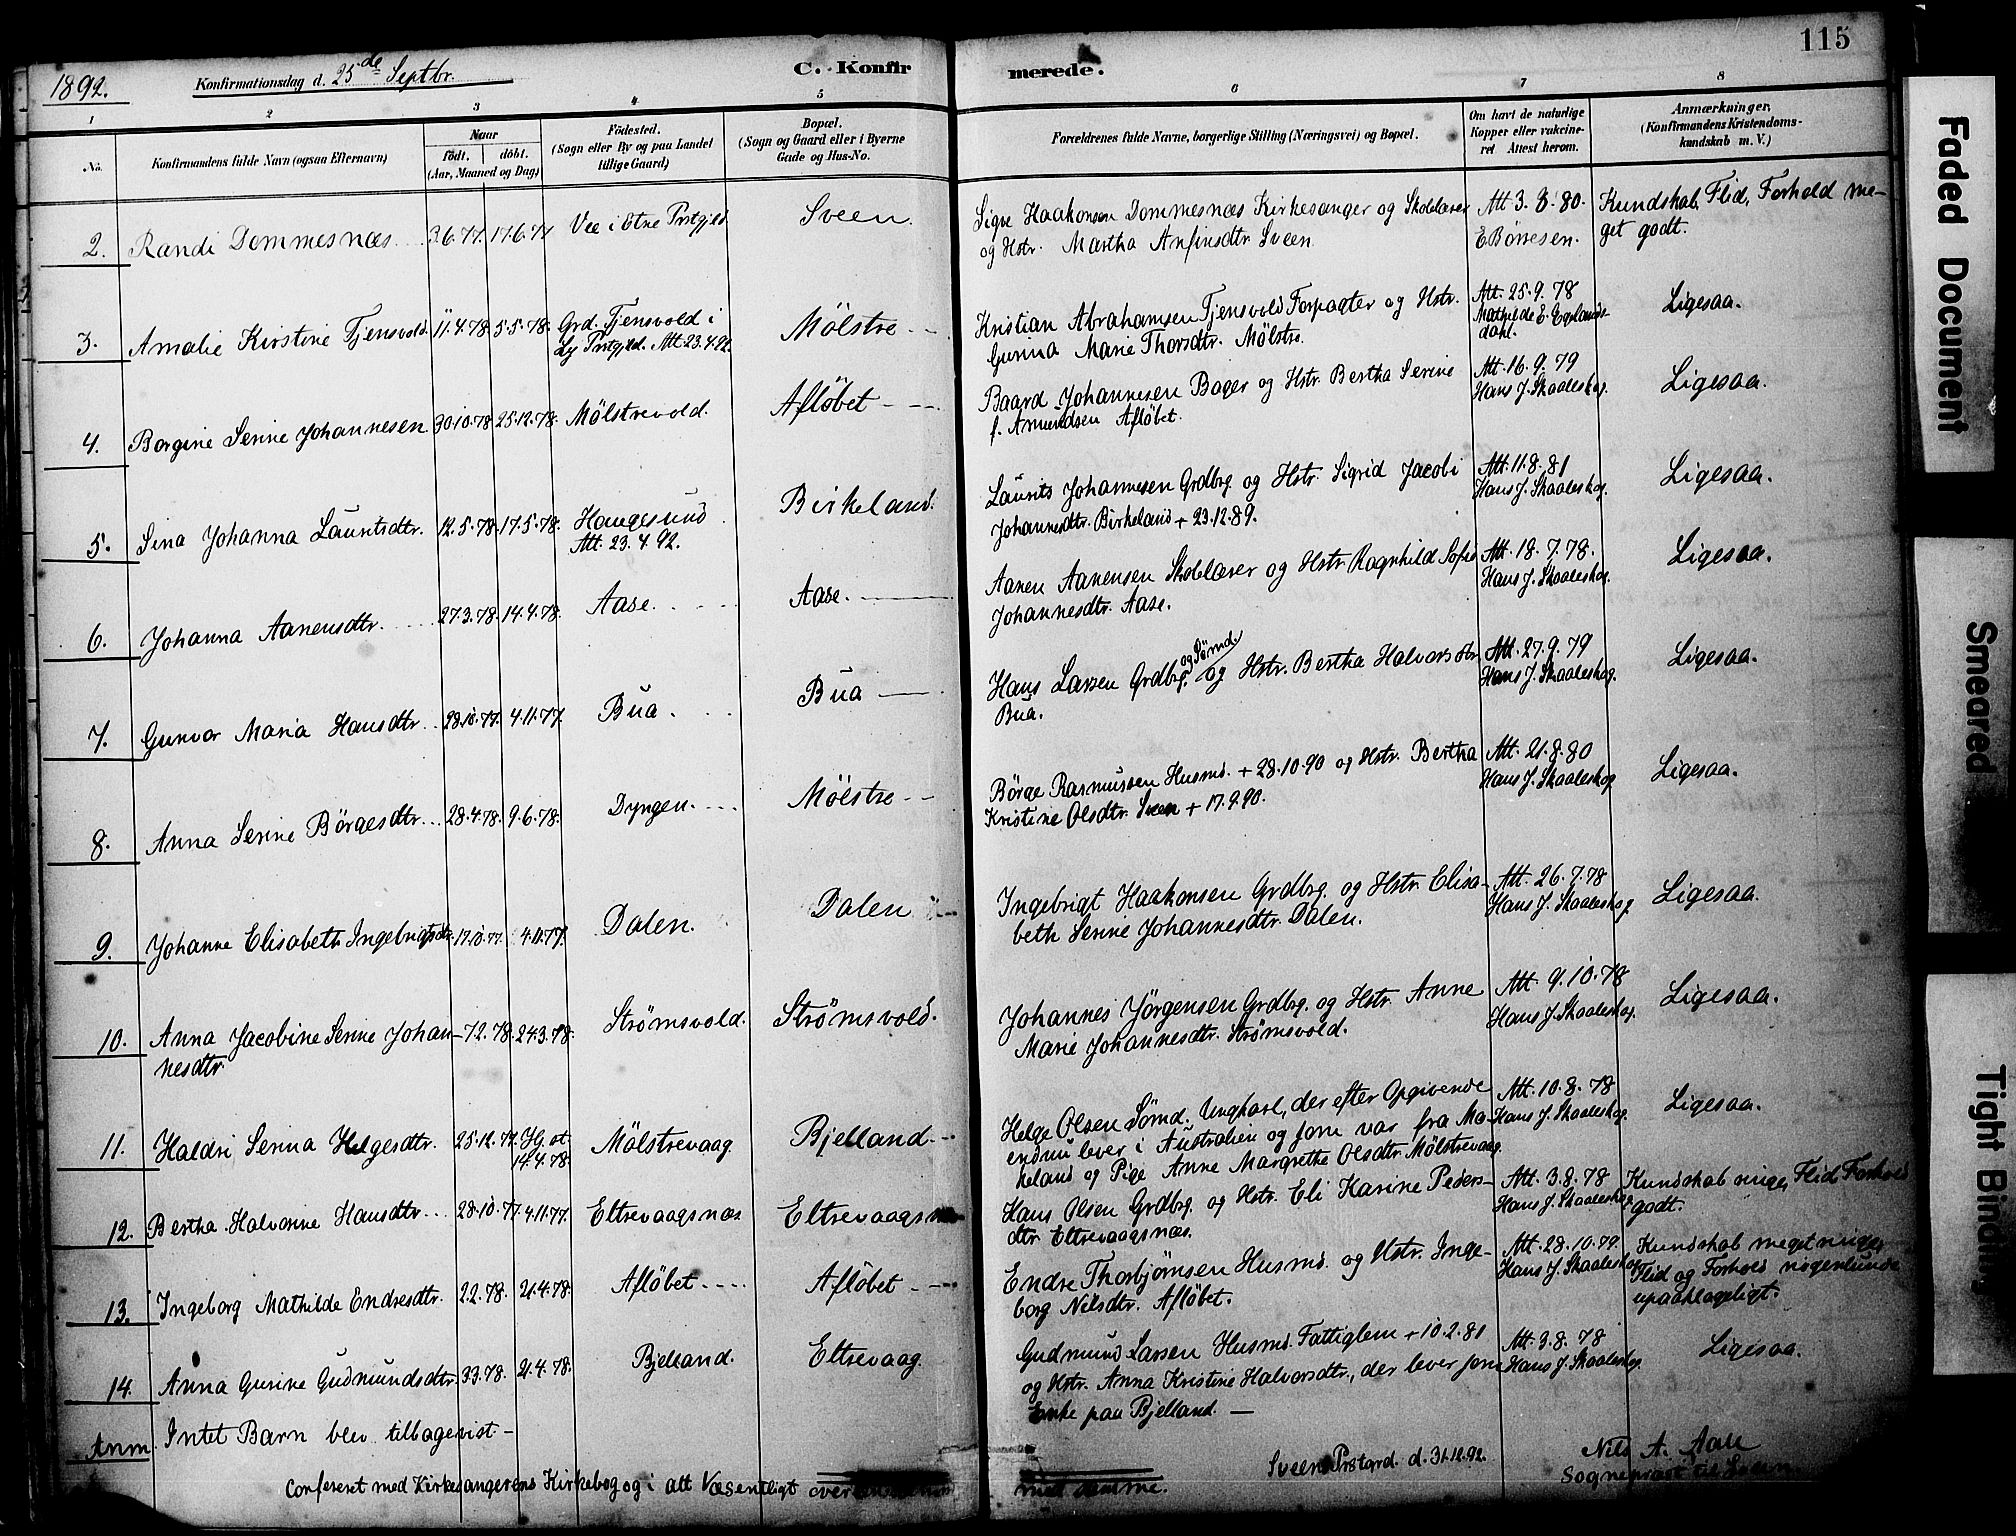 115
1892.
Konfirmationsdag d. 25de Septbr.
C. Konfirmerede.
1 2 3 4 5 6 7 8
No.
Konfirmandens fulde Navn (ogsaa Efternavn)
Naar
födt. döbt.
(Aar, Maaned og Dag)
Födested.
(Sogn eller By og paa Landet
tillige Gaard)
Bopæl.
(Sogn og Gaard eller i Byerne
Gade og Hus-No.
Forældrenes fulde Navne, borgerlige Stilling (Næringsvei) og Bopæl.
Om havt de naturlige
Kopper eller vakcine-
ret Attest herom.
Anmærkninger,
(Konfirmandens Kristendoms-
kundskab m. V.)
2. Randi Dommesnæs 3.6.77 17.6.77 Vee i Etne Prstgjld Sveen.
Sigve Haakonsen Dommesnæs Kirkesanger og Skolelærer
og Hstr. Martha Anfinsdtr Sveen.
Att 3.8.80.
E Börresen.
Kundskab, Flid, Forhold me-
get godt.
3. Amalie Kirstine Tjensvold 11.4.78 5.5.78. Grd. Tjensvold i
Ly Prstgjld. Att 23.4.92. Mölstre
Kristian Abrahamsen Tjensvold Forpagter og Hstr.
Gurina Marie Thorsdtr. Mölstre.
Att. 25.9.78
Mathilde E. Egelands-
dahl.
Ligesaa.
4. Borgine Serine Johannesen 30.10.78 25.12.78. Mölstrevold. Aflöbet
Baard Johannesen Bager og Hstr. Bertha Serine
f. Amundsen Aflöbet.
Att. 16.9.79
Hans J. Skaaleskog.
Ligesaa.
5. Sina Johanna Lauritsdtr. 12.5.78 17.5.78. Haugesund
Att. 23.4.92. Birkeland.
Laurits Johannesen Grdbrg. og Hstr. Sigrid Jacobi
Johannesdtr. Birkeland + 23.12.89.
Att. 11.8.81
Hans J. Skaaleskog.
Ligesaa.
6. Johanna Aanensdtr. 27.3.78. 14.4.78. Aase. Aase.
Aanen Aanensen Skolelærer og Hstr. Ragnhild Sofie
Johannesdtr. Aase.
Att. 18.7.78.
Hans J. Skaaleskog.
Ligesaa.
7. Gunvor Maria Hansdtr. 28.10.77. 4.11.77. Bua. Bua
Hans Larsen Grdbrg. og Sömd. og Hstr. Bertha Halvorsdtr
Bua.
Att. 27.9.79
Hans J. Skaaleskog.
Ligesaa.
8. Anna Serine Börgesdtr. 28.4.78. 9.6.78. Dyngen. Mölstre
Börge Rasmussen Husmd. + 28.10.90 og Hstr. Bertha
Kristine Olsdtr. Sveen + 17.9.90.
Att. 21.8.80
Hans J. Skaaleskog
Ligesaa.
9. Johanne Elisabeth Ingebrigtsdtr. 17.10.77. 4.11.77. Dalen. Dalen
Ingebrigt Haakonsen Grdbrg. og Hstr. Elisa-
beth Serine Johannesdtr. Dalen.
Att. 26.7.78
Hans J. Skaaleskog.
Ligesaa.
10. Anna Jacobine Serine Johan-
nesdtr. 7.2.78. 24.3.78. Strömsvold. Strömsvold.
Johannes Jörgensen Grdbrg. og Hstr. Anne
Marie Johannesdtr. Strömsvold.
Att. 9.10.78
Hans J. Skaaleskog.
Ligesaa.
11. Haldri Serina Helgesdtr. 25.12.77. Hj. st.
14.4.78. Mölstrevaag Bjelland
Helge Olsen Sömd. Ungkarl, der efter Opgivende
endnu lever i Australien og som var fra Ma-
keland og Pige Anne Margrethe Olsdtr. Mölstrevaag
Att. 10.8.78
Hans J. Skaaleskog.
Ligesaa.
12. Bertha Halvorine Hansdtr. 28.10.77. 4.11.77. Eltrevaagsnæs Eltrevaagsnæs
Hans Olsen Grdbrg. og Hstr. Eli Karine Peders-
dtr Eltrevaagsnæs.
Att. 3.8.78
Hans J. Skaaleskog
Kundskab ringe, Flid, Forhold
godt.
13. Ingeborg Mathilde Endresdtr. 2.2.78. 21.4.78. Aflöbet Aflöbet
Endre Thorbjörnsen Husmd. og Hstr. Inge-
borg Nilsdtr. Aflöbet.
Att. 28.10.79
Hans J. Skaaleskog
Kundskab meget ringe,
Flid og Forhold nogenlunde
upaaklageligt.
14. Anna Gurine Gudmundsdtr. 3.3.78. 21.4.78. Bjelland. Eltrevaag.
Gudmund Larsen Husmd. Fattiglem + 10.2.81
og Hstr. Anna Kristine Halvorsdtr., der lever som
Enke paa Bjelland.
Att. 3.8.78
Hans J. Skaaleskog.
Ligesaa.
Anm. Intet Barn blev tilbagevist
Sveens Prstgrd. d. 31.12.92. Nils A. Aau
Sogneprest til Sveen
Confereret med Kirkesangerens Kirkebog og i att Væsentligt
med samme.
Faded Document
Smeared
Tight Binding